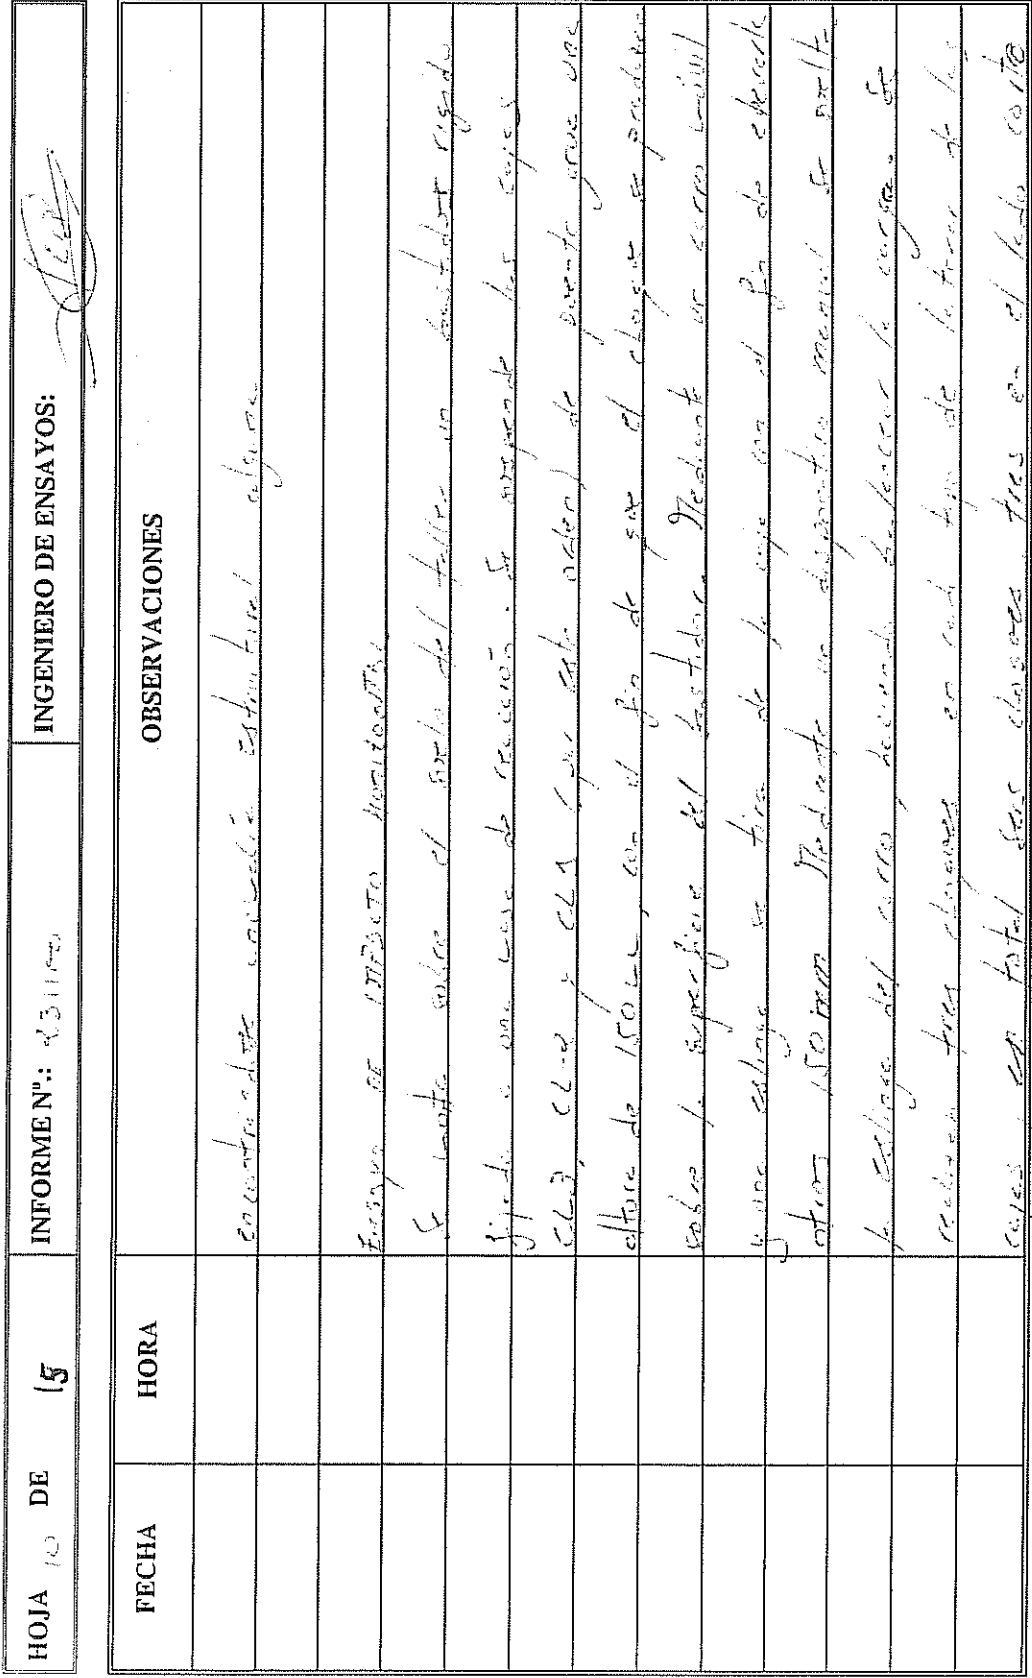 HOJA 10 DE 15
INFORME Nº.:
INGENIERO DE ENSAYOS:
FECHA HORA OBSERVACIONES
encontrandose anomalía estructural alguna
Ensayo de IMPACTO HORIZONTAL
Se monta sobre el suelo del taller un bastidor rigido
fijado a una de reacción. Se suspende las cajas
CL-2 y CL1 (por este orden) de puente grua una
altura de 150 mm con el fin de que el choque se produzca
sobre la superficie del bastidor. Mediante un carro móvil
y una eslinga se tira de la caja con el fin de
otros 150 mm Mediante un dispositivo manual se suelta
la eslinga del carro haciendo balancear la carga. Se
realizan tres choques en cada tipo de de las
cajas, en total seis choques tres en el lado corto